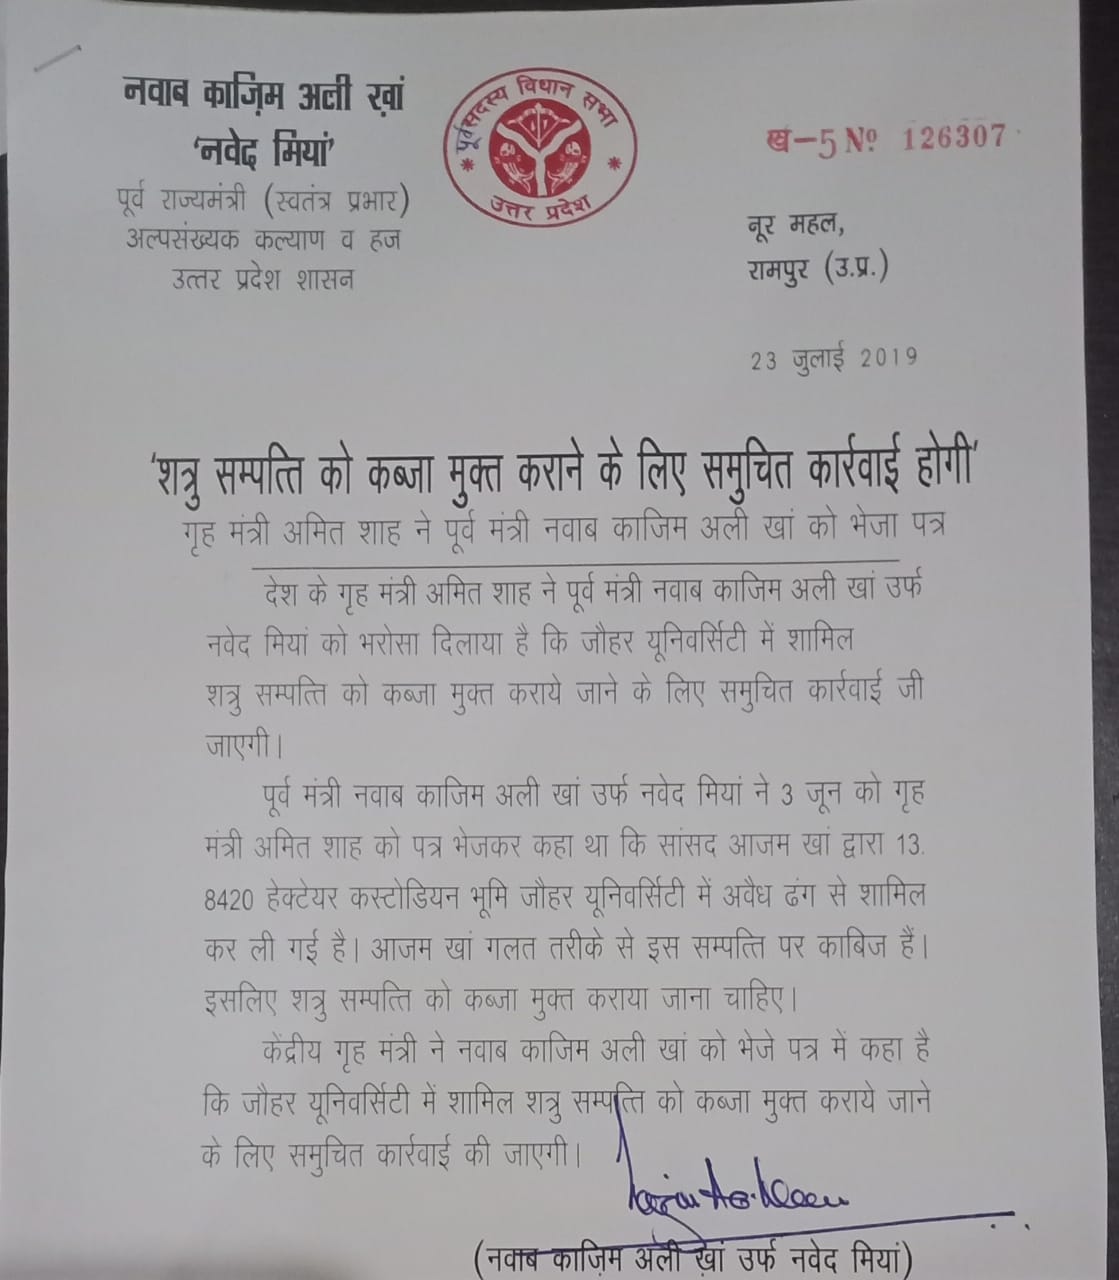 नवाब काज़िम अली ख़ां
'नवेद मियां'
पूर्व राज्यमंत्री (स्वतंत्र प्रभार)
अल्पसंख्यक कल्याण व हज
उत्तर प्रदेश शासन
पूर्व सदस्य विधान सभा
उत्तर प्रदेश
ख-5 Nº 126307
नूर महल,
रामपुर (उ.प्र.)
23 जुलाई 2019
'शत्रु सम्पत्ति को कब्जा मुक्त कराने के लिए समुचित कार्रवाई होगी'
गृह मंत्री अमित शाह ने पूर्व मंत्री नवाब काजिम अली खां को भेजा पत्र
देश के गृह मंत्री अमित शाह ने पूर्व मंत्री नवाब काजिम अली खां उर्फ
नवेद मियां को भरोसा दिलाया है कि जौहर यूनिवर्सिटी में शामिल
शत्रु सम्पत्ति को कब्जा मुक्त कराये जाने के लिए समुचित कार्रवाई जी
जाएगी।
पूर्व मंत्री नवाब काजिम अली खां उर्फ नवेद मियां ने 3 जून को गृह
मंत्री अमित शाह को पत्र भेजकर कहा था कि सांसद आजम खां द्वारा 13.
8420 हेक्टेयर कस्टोडियन भूमि जौहर यूनिवर्सिटी में अवैध ढंग से शामिल
कर ली गई है। आजम खां गलत तरीके से इस सम्पत्ति पर काबिज हैं।
इसलिए शत्रु सम्पत्ति को कब्जा मुक्त कराया जाना चाहिए।
केंद्रीय गृह मंत्री ने नवाब काजिम अली खां को भेजे पत्र में कहा है
कि जौहर यूनिवर्सिटी में शामिल शत्रु सम्पत्ति को कब्जा मुक्त कराये जाने
के लिए समुचित कार्रवाई की जाएगी।
(नवाब काज़िम अली ख़ां उर्फ नवेद मियां)